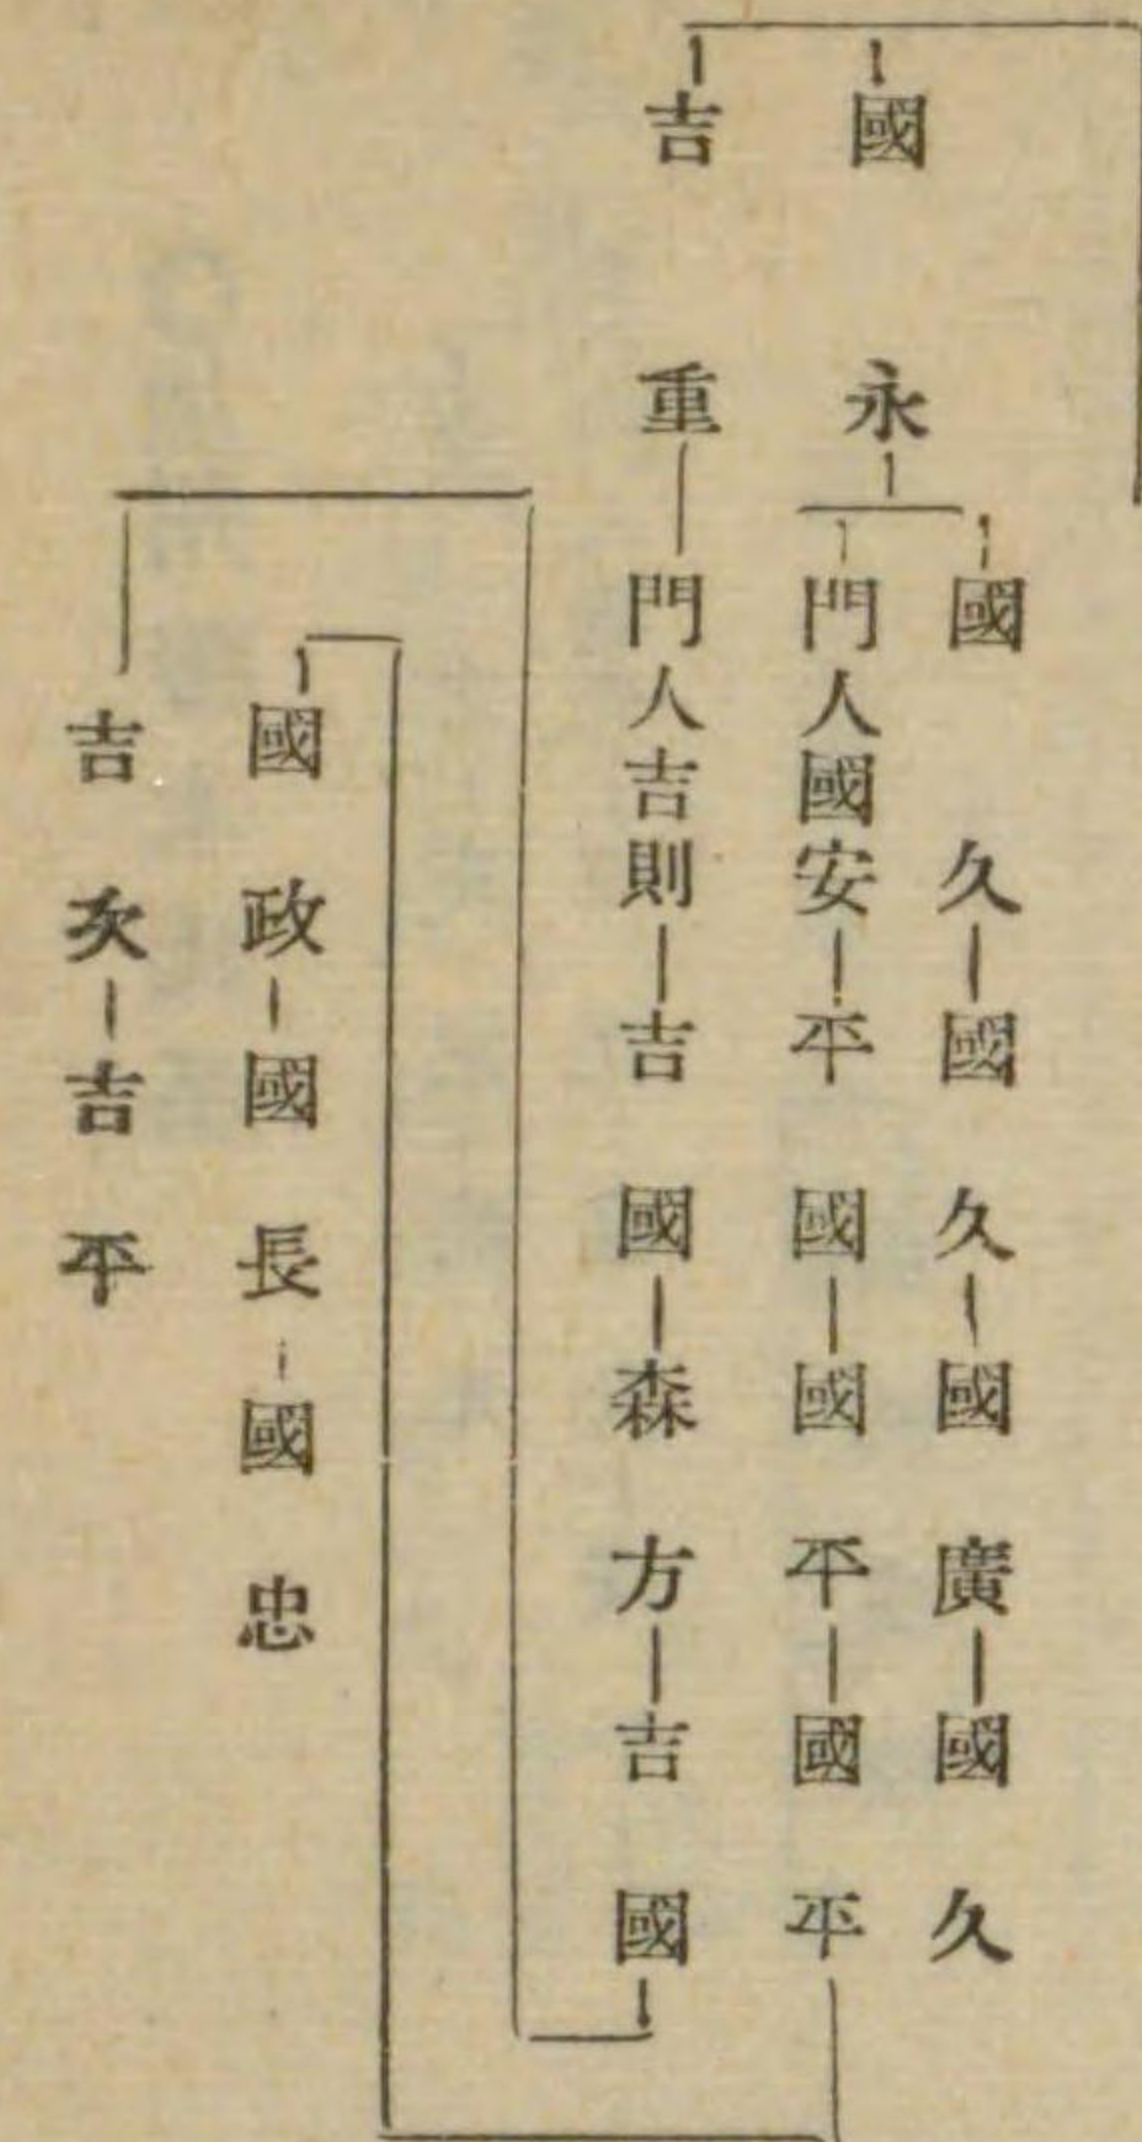 國永
國久―國久―國廣―國久
門人國安―平國―國平―國平
吉重―門人吉則―吉國―森方―吉國
國政―國長―國忠
吉次―吉平